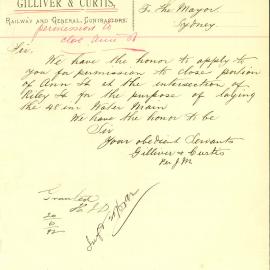 GILLIVER & CURTIS,
RAILWAY AND GENERAL CONTRACTORS.
To The Mayor
Sydney
permission to
close Ann St
Sir.
We have the honor to apply to
you for permission to close portion
of Ann St at the intersection of
Riley St for the purpose of laying
the 48 in Water Main
We have the honor to be
Sir
Your obedient Servants
Gilliver & Curtis
Per J M
Granted
20
6
92